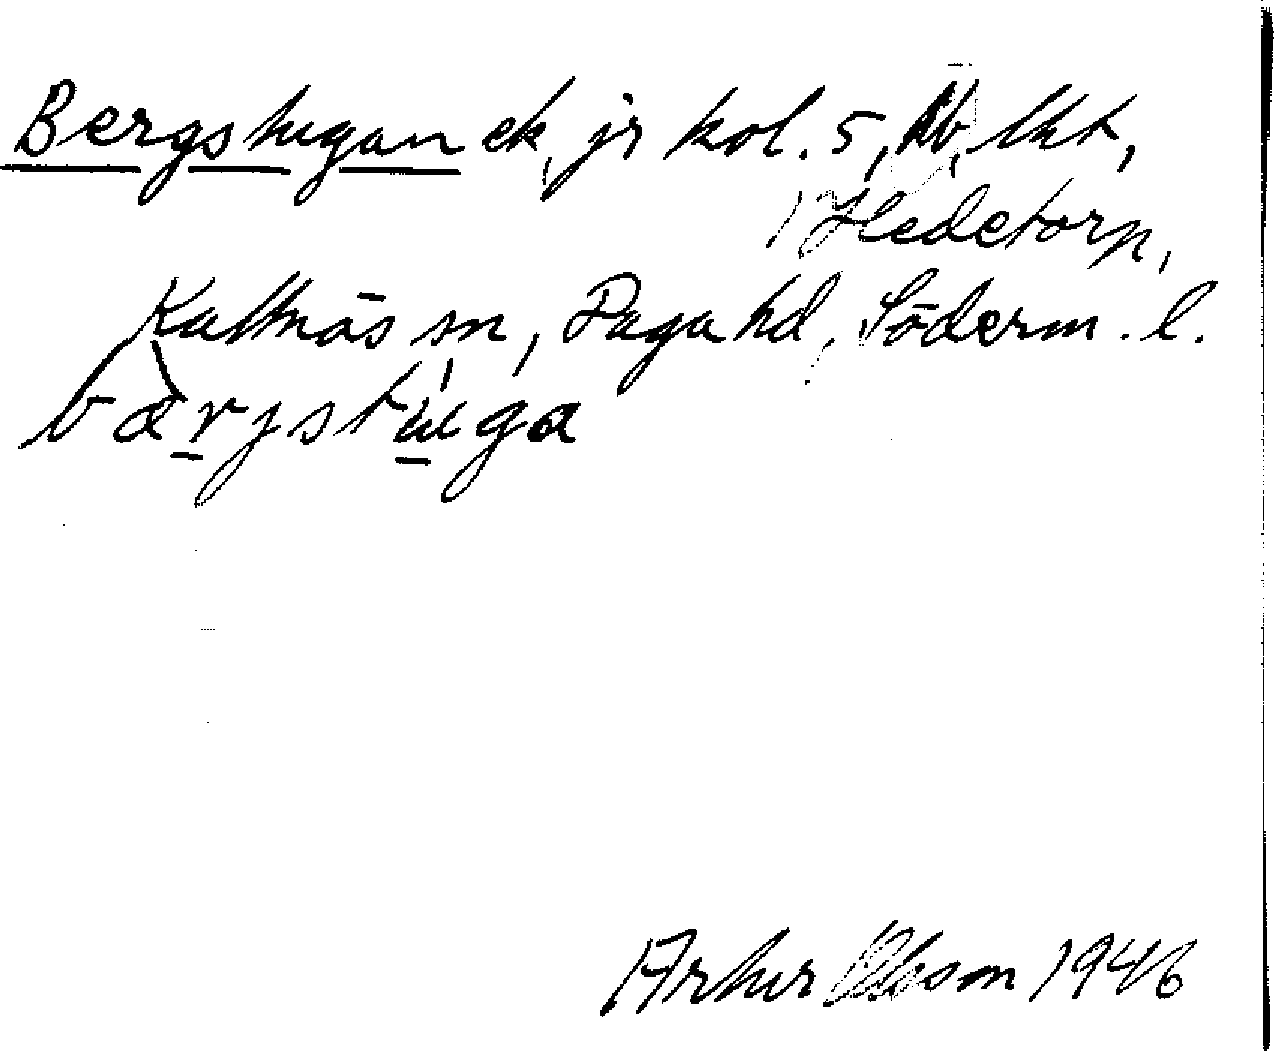 Bergstugan ek, jr kol. 5, Ab, lht,
Hedetorp,
Kattnäs sn, Daga hd, Söderm. l.
bærjstuga
Arthur Olsson 1946